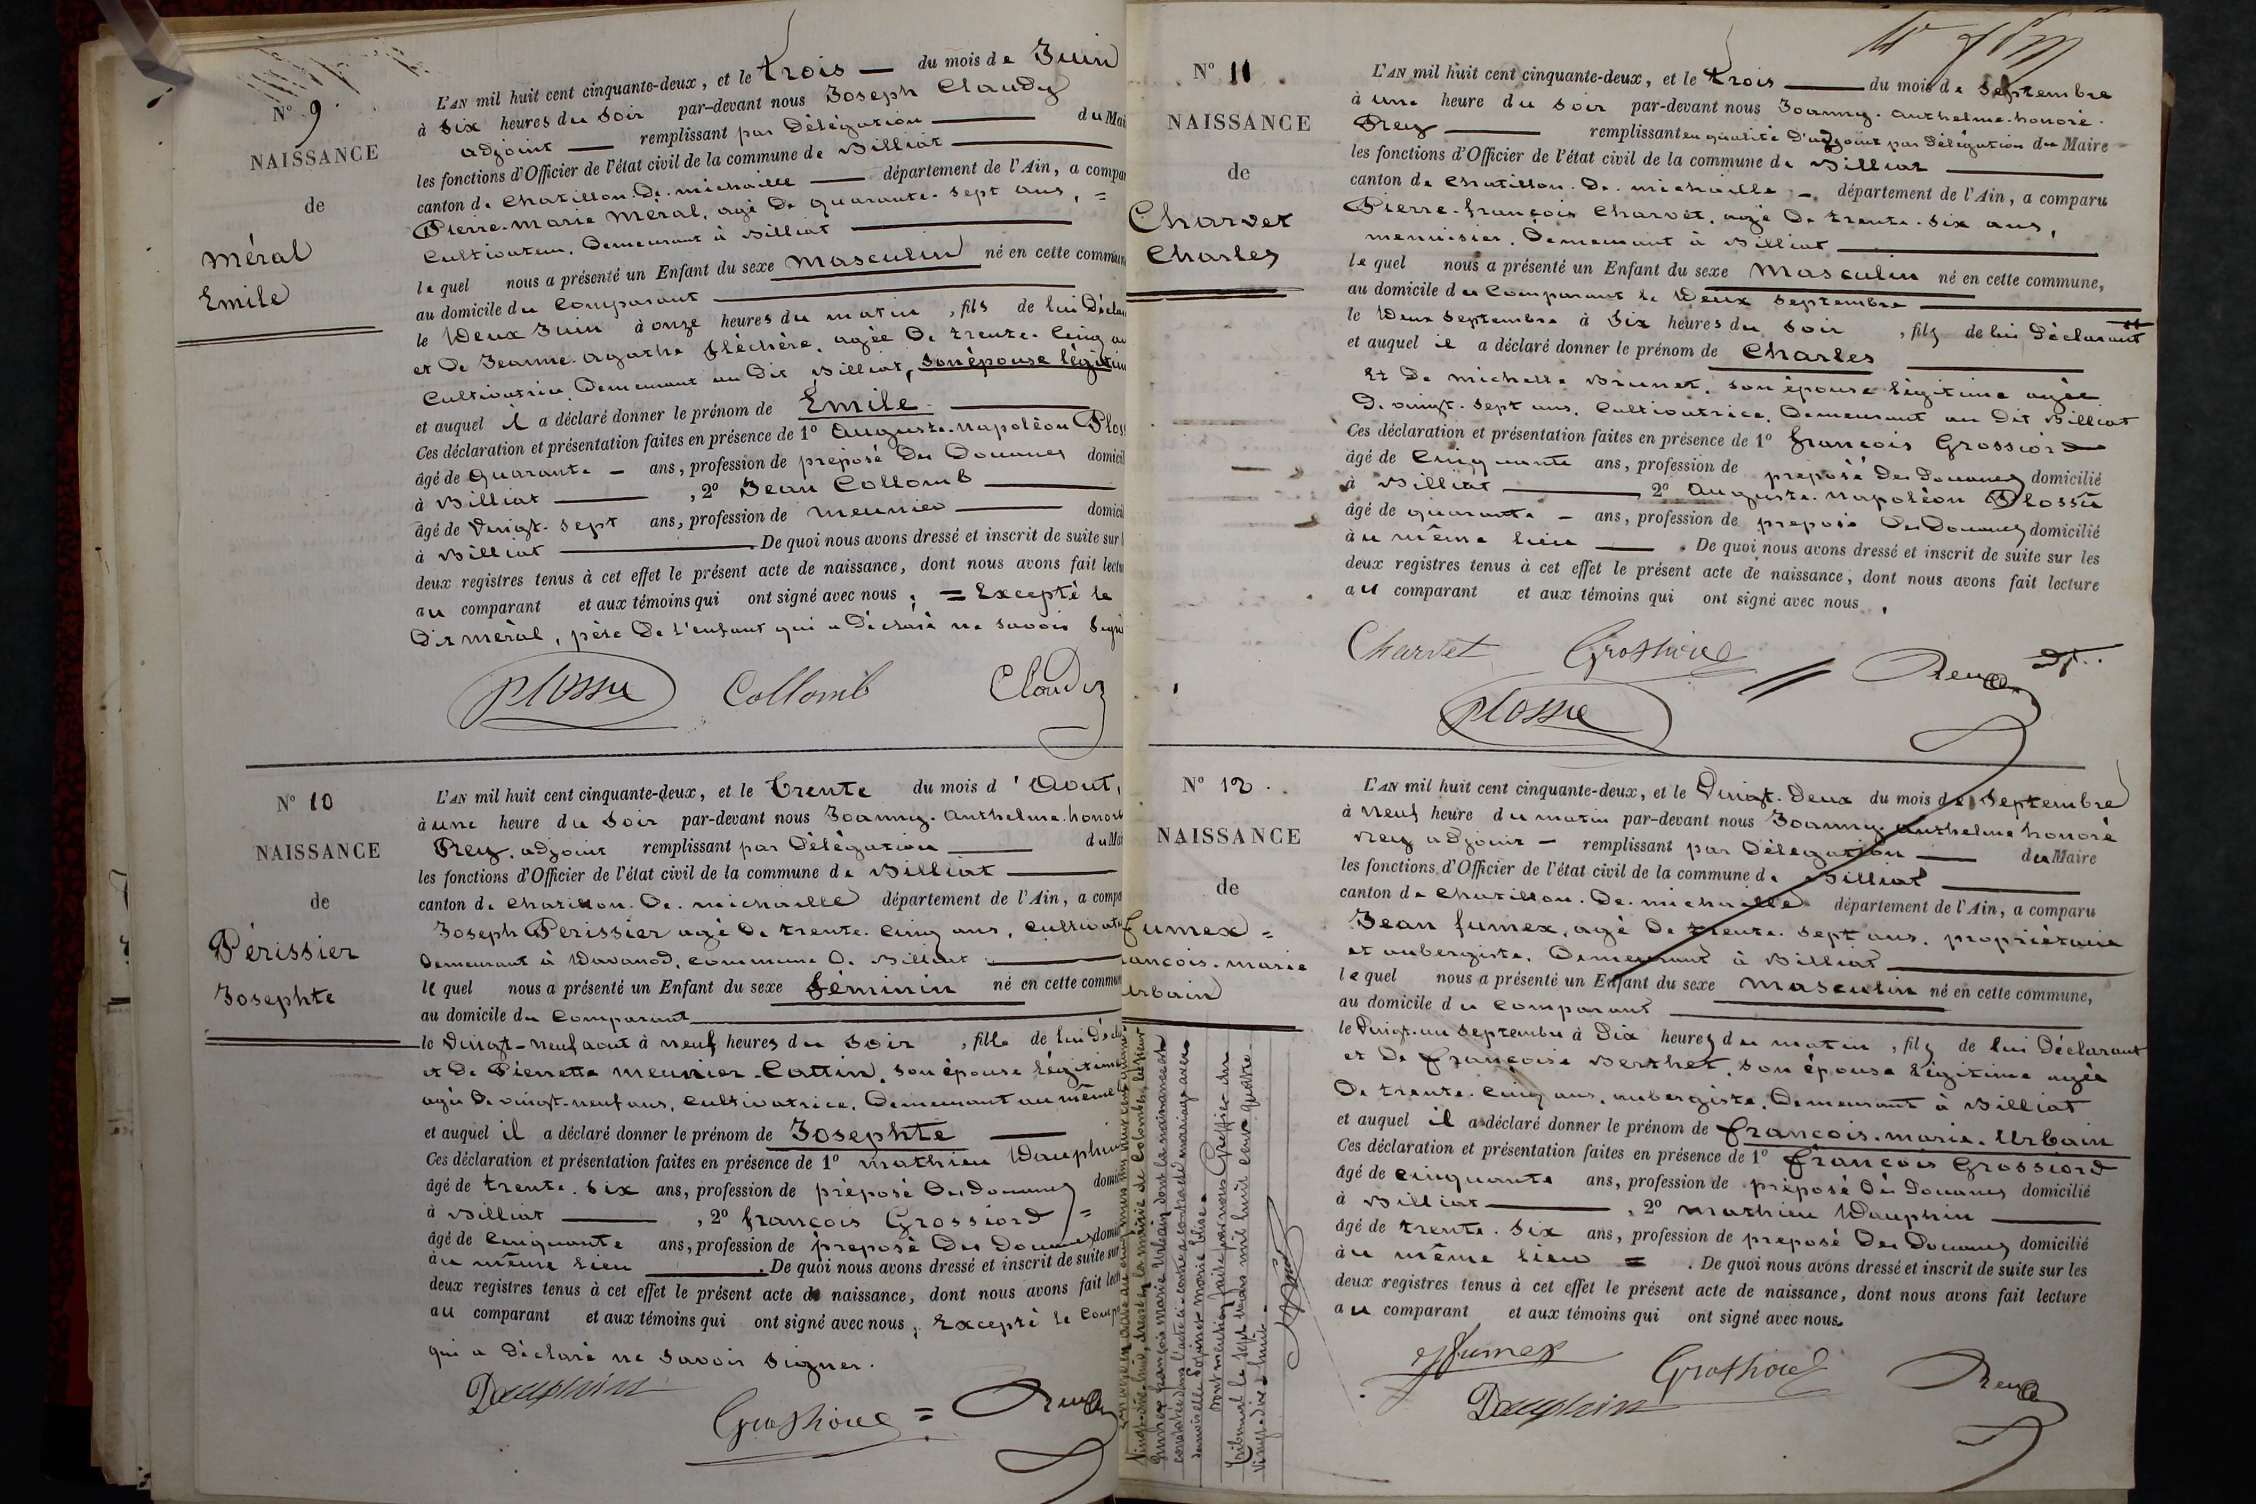 N° 9.
NAISSANCE
de
Méral
Emile
L'AN mil huit cent cinquante-deux, et le trois — du mois de Juin
à Six heures du Soir par-devant nous Joseph Claudy
adjoint — remplissant par Délégation — du Mai
les fonctions d'Officier de l'état civil de la commune de Billiat —
canton de Chatillon. De. michaille — département de l'Ain, a compa
Pierre-Marie Méral, agé De quarante-sept ans, =
Cultivateur, Demeurant à Billiat —
lequel nous a présenté un Enfant du sexe Masculin né en cette commun
au domicile du Comparant —
le Deux Juin à onze heures du matin, fils de lui Décla
et De Jeanne-Agathe fléchère, agée De trente-Cinq an
Cultivatrice, Demeurant au Dit Billiat, son épouse légitim
et auquel il a déclaré donner le prénom de Emile —
Ces déclaration et présentation faites en présence de 1° Auguste-Napoléon Plos
âgé de Quarante — ans, profession de préposé Des Douanes domicil
à Billiat —, 2° Jean Collomb —
âgé de Vingt-sept ans, profession de meunier — domici
à Billiat — . De quoi nous avons dressé et inscrit de suite sur
deux registres tenus à cet effet le présent acte de naissance, dont nous avons fait lectu
au comparant et aux témoins qui ont signé avec nous, = Excepté le
Dit Méral, père De l'enfant qui a Déclaré ne savoir Signe
Plossu Collomb Claudy
N° 10
NAISSANCE
de
Périssier
Josephte
L'AN mil huit cent cinquante-deux, et le trente du mois d'Aout,
à une heure du Soir par-devant nous Joanny-Anthelme-honoré
Rey, adjoint remplissant par Délégation — du Mai
les fonctions d'Officier de l'état civil de la commune de Billiat —
canton de Chatillon. De. michaille département de l'Ain, a compa
Joseph Périssier agé De trente-Cinq ans, Cultivate
Demeurant à Davanod, commune De Billiat —
lequel nous a présenté un Enfant du sexe féminin né en cette commun
au domicile du Comparant —
le Vingt-neuf aout à neuf heures du Soir, fille de lui Décla
et De Pierrette Meunier-Cattin, son épouse légitime
agée De vingt-neuf ans, Cultivatrice, Demeurant au même
et auquel il a déclaré donner le prénom de Josephte —
Ces déclaration et présentation faites en présence de 1° Mathieu Dauphin
âgé de trente-six ans, profession de préposé Des Douanes domici
à Billiat —, 2° françois Grossiord =
âgé de Cinquante ans, profession de préposé Des Douanes domici
au même lieu — . De quoi nous avons dressé et inscrit de suite sur
deux registres tenus à cet effet le présent acte de naissance, dont nous avons fait lect
au comparant et aux témoins qui ont signé avec nous, Excepté le Comp
qui a Déclaré ne savoir signer.
Dauphin
Grossiord = Rey
N° 11.
NAISSANCE
de
Charvet
Charles
L'AN mil huit cent cinquante-deux, et le trois — du mois de Septembre
à une heure du Soir par-devant nous Joanny-Anthelme-honoré.
Rey — remplissant en qualité D'adjoint par Délégation du Maire
les fonctions d'Officier de l'état civil de la commune de Billiat —
canton de Chatillon. De. michaille — département de l'Ain, a comparu
Pierre-françois Charvet, agé De trente-six ans,
menuisier, Demeurant à Billiat —
lequel nous a présenté un Enfant du sexe Masculin né en cette commune,
au domicile du Comparant le Deux Septembre —
le Deux Septembre à Six heures du Soir, fils de lui Déclarant
et auquel il a déclaré donner le prénom de Charles —
Et De michelle Brunet, son épouse légitime agée
De vingt-sept ans, Cultivatrice, Demeurant au Dit Billiat
Ces déclaration et présentation faites en présence de 1° françois Grossiord
âgé de Cinquante ans, profession de préposé Des Douanes domicilié
à Billiat — 2° Auguste-Napoléon Plossu
âgé de quarante — ans, profession de préposé Des Douanes domicilié
au même lieu — . De quoi nous avons dressé et inscrit de suite sur les
deux registres tenus à cet effet le présent acte de naissance, dont nous avons fait lecture
au comparant et aux témoins qui ont signé avec nous,
Charvet Grossiord Rey
Plossu
N° 12.
NAISSANCE
de
fumex =
ancois-marie
Urbain
L'AN mil huit cent cinquante-deux, et le Vingt-Deux du mois de Septembre
à neuf heure du matin par-devant nous Joanny-Anthelme honoré
Rey adjoint — remplissant par Délégation — du Maire
les fonctions d'Officier de l'état civil de la commune de Billiat —
canton de Chatillon. De. michaille département de l'Ain, a comparu
Jean fumex, agé De trente-sept ans, propriétaire
et aubergiste, Demeurant à Billiat —
lequel nous a présenté un Enfant du sexe Masculin né en cette commune,
au domicile du Comparant —
le Vingt-un Septembre à Dix heures du matin, fils de lui Déclarant
et De françoise Berthet, son épouse légitime agée
De trente-Cinq ans, aubergiste, Demeurant à Billiat
et auquel il a déclaré donner le prénom de françois-marie-Urbain
Ces déclaration et présentation faites en présence de 1° françois Grossiord
âgé de Cinquante ans, profession de préposé Des Douanes domicilié
à Billiat —, 2° Mathieu Dauphin —
âgé de trente-six ans, profession de préposé Des Douanes domicilié
au même lieu = . De quoi nous avons dressé et inscrit de suite sur les
deux registres tenus à cet effet le présent acte de naissance, dont nous avons fait lecture
au comparant et aux témoins qui ont signé avec nous.
fumex Grossiord Rey
Dauphin
Vingt-dix-huit, dressé en la mairie de Colombes, le sieur
fumex françois marie Urbain dont la naissance est
constatée dans l'acte ci-contre a contracté mariage avec
demoiselle marie Elisa.
Dont mention faite par nous Greffier du
tribunal le sept mars mil huit cent quatre-
vingt-dix-huit.